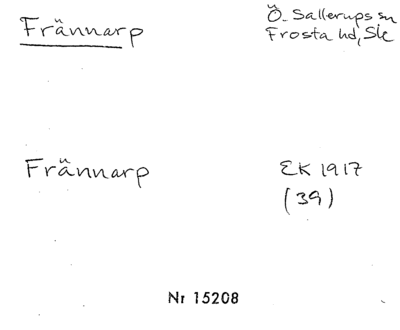 Frännarp
Ö. Sallerups sn
Frosta hd, Ske
Frännarp
EK 1917
(39)
Nr 15208